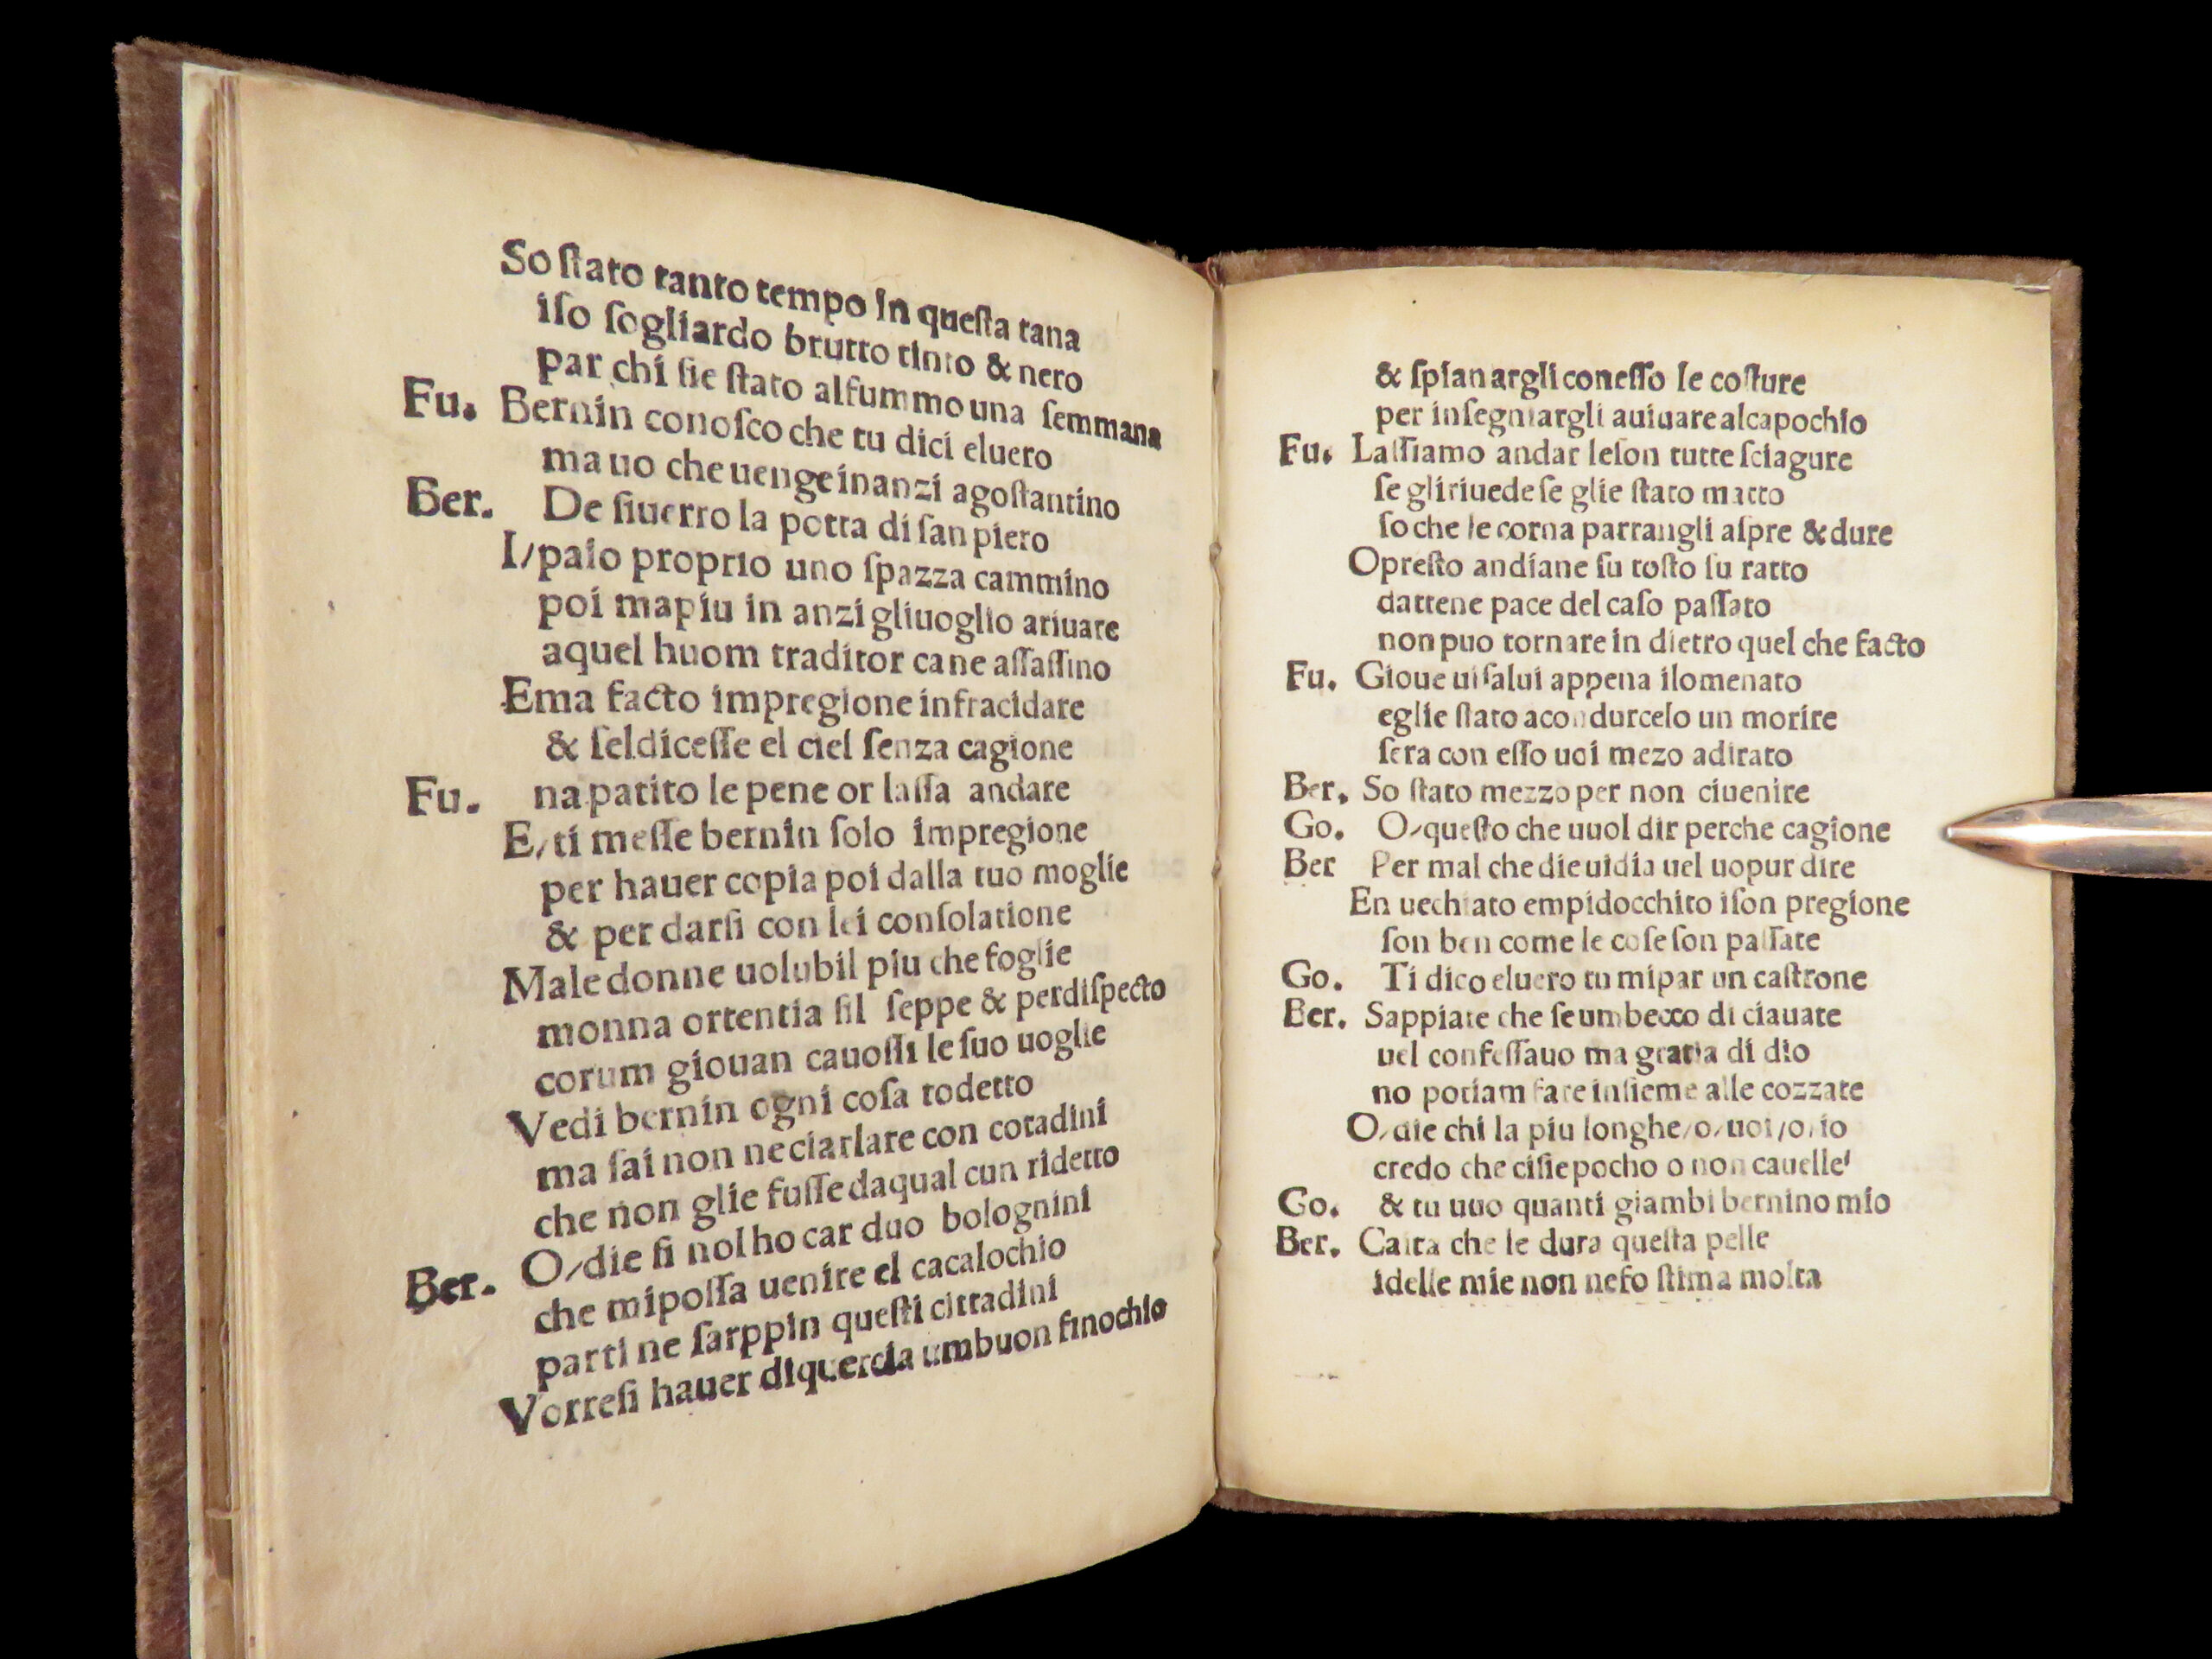 So ſtato tanto tempo in queſta tana
iſo ſogliardo brutto tinto & nero
par chi ſie ſtato alfummo una ſemmana
Fu. Bernin conoſco che tu dici eluero
ma uo che uenge inanzi agoſtantino
Ber. De ſiuerro la potta di ſan piero
I/paio proprio uno ſpazza cammino
poi mapiu in anzi gliuoglio ariuare
aquel huom traditor cane aſſaſſino
Ema facto impregione infracidare
& ſeldiceſſe el ciel ſenza cagione
Fu. na patito le pene or laſſa andare
E/ti meſſe bernin ſolo impregione
per hauer copia poi dalla tuo moglie
& per darſi con lei conſolatione
Male donne uolubil piu che foglie
monna ortentia ſil ſeppe & perdiſpecto
corum giouan cauoſſi le ſuo uoglie
Vedi bernin ogni coſa todetto
ma ſai non neciarlare con cotadini
che non glie fuſſe daqual cun ridetto
Ber. O/die ſi nol ho car duo bolognini
che mipoſſa uenire el cacalochio
parti ne ſarppin queſti cittadini
Vorreſi hauer diquercia umbuon finochio
& ſpianargli coneſſo le coſture
per inſegniargli auiuare alcapochio
Fu. Laſſiamo andar leſon tutte ſciagure
ſe gliriuede ſe glie ſtato matto
ſo che le corna parrangli aſpre & dure
Opreſto andiane ſu toſto ſu ratto
dattene pace del caſo paſſato
non puo tornare in dietro quel che facto
Fu. Gioue uiſalui appena ilomenato
eglie ſtato acondurcelo un morire
ſera con eſſo uoi mezo adirato
Ber. So ſtato mezzo per non ciuenire
Go. O/queſto che uuol dir perche cagione
Ber Per mal che die uidia uel uopur dire
En uechiato empidocchito iſon pregione
ſon ben come le coſe ſon paſſate
Go. Ti dico eluero tu mipar un caſtrone
Ber. Sappiate che ſe umbecco di ciauate
uel confeſſauo ma gratia di dio
no potiam fare inſieme alle cozzate
O/die chi la piu longhe/o/uoi/o/io
credo che ciſie pocho o non cauelle
Go. & tu uuo quanti giambi bernino mio
Ber. Caita che le dura queſta pelle
idelle mie non nefo ſtima molta